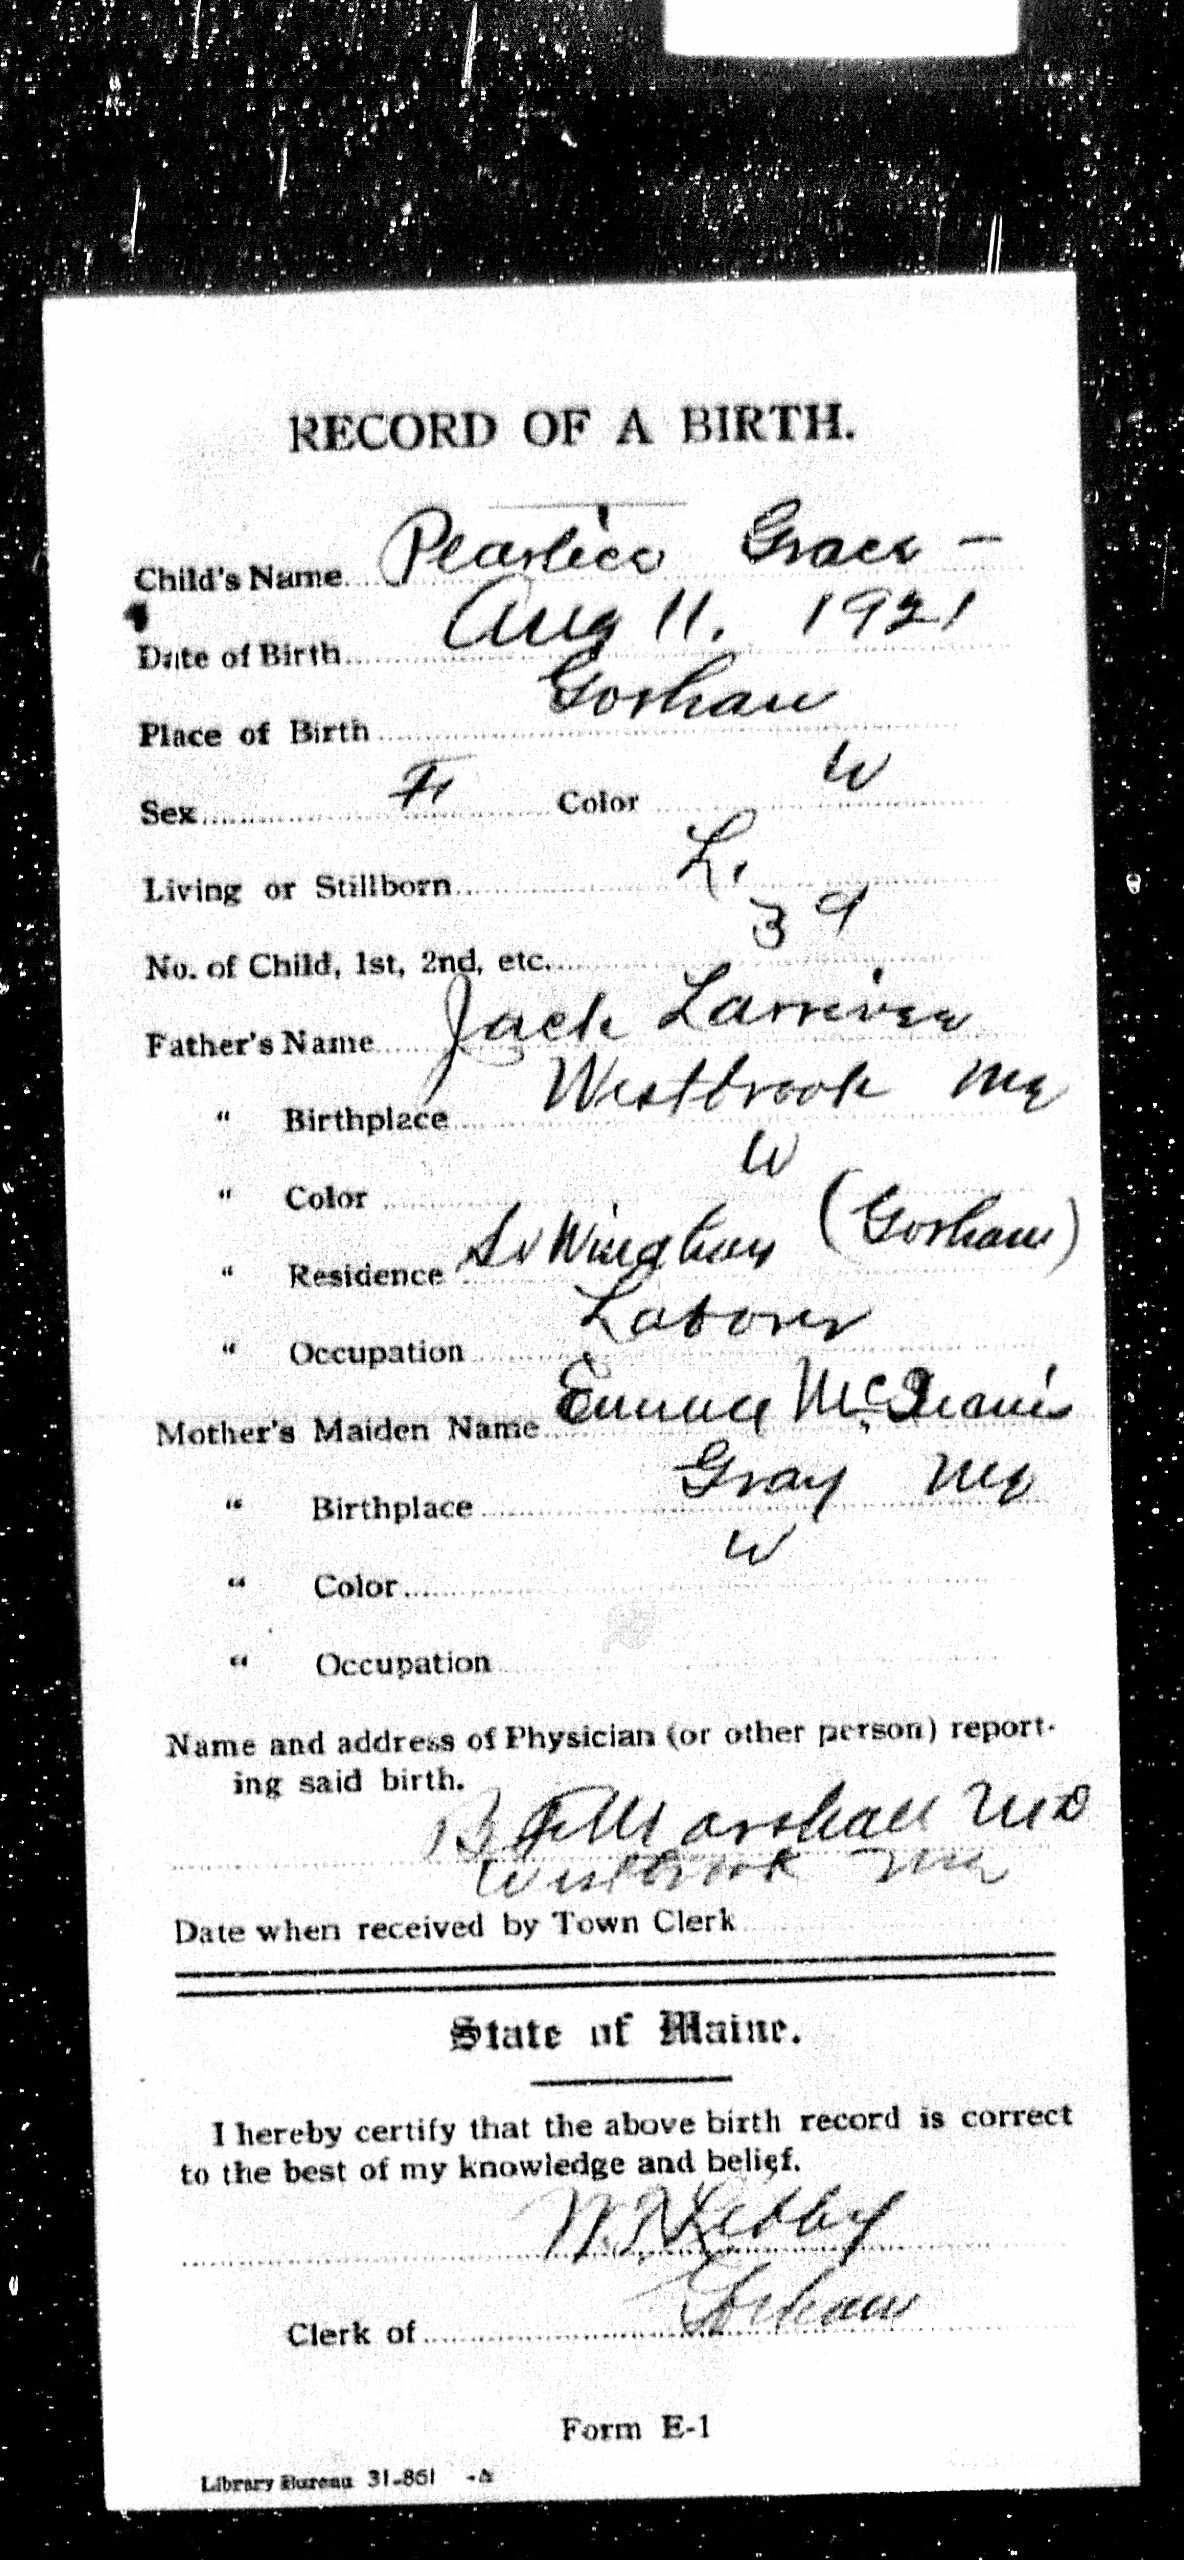 RECORD OF A BIRTH.
Child's Name Grace -
Date of Birth Aug 11. 1921
Place of Birth Gorham
Sex F. Color W
Living or Stillborn L.
No. of Child, 1st, 2nd, etc. 3 d
Father's Name Jack Larrivee
" Birthplace Westbrook Me
" Color W
" Residence So Windham (Gorham)
" Occupation Laborer
Mother's Maiden Name
" Birthplace Gray Me
" Color W
" Occupation
Name and address of Physician (or other person) report-
ing said birth.
B F Marshall MD
Westbrook Me
Date when received by Town Clerk
State of Maine.
I hereby certify that the above birth record is correct
to the best of my knowledge and belief.
Libby
Clerk of Gorham
Form E-1
Library Bureau 31-861